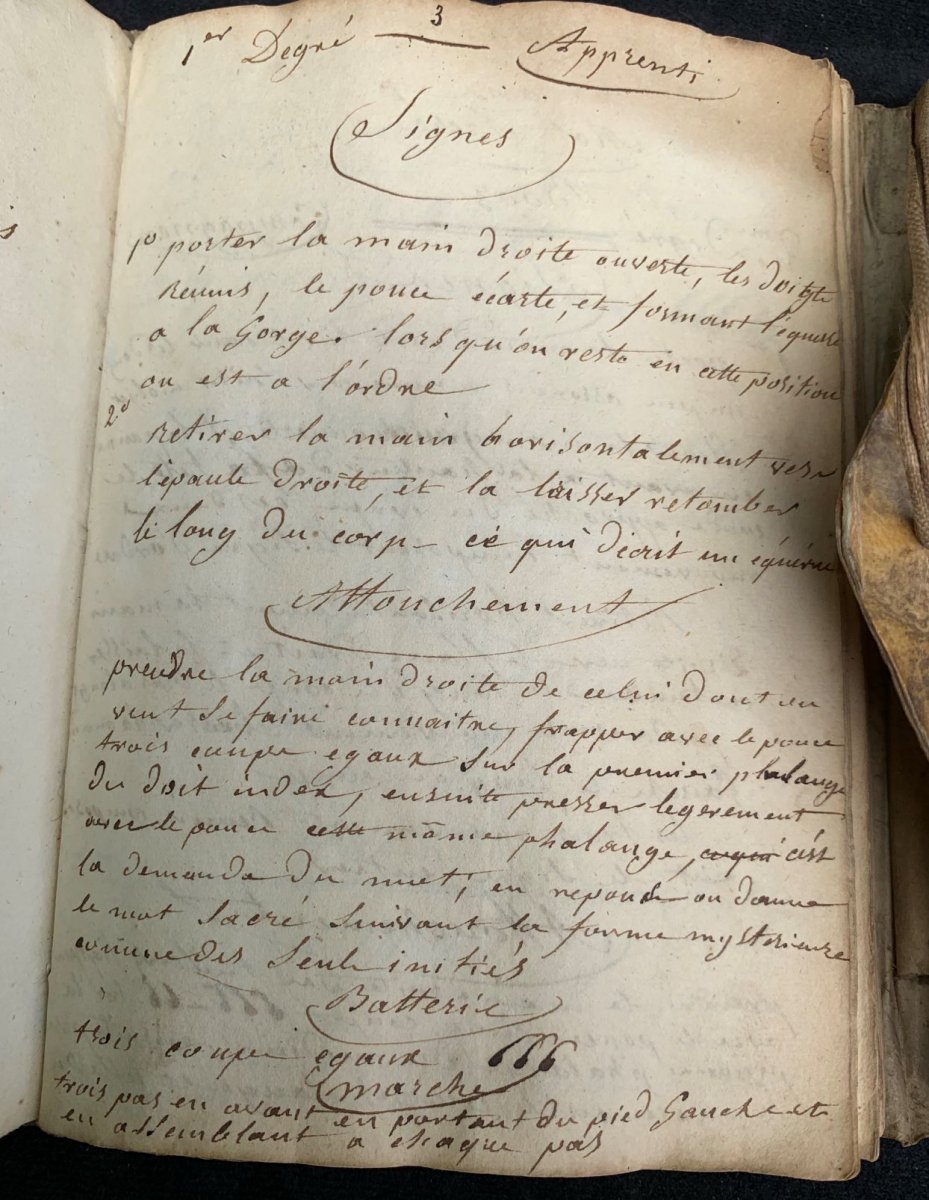 3
1er Degré — Apprenti
Signes
1o porter la main droite ouverte, les doigts
réunis, le pouce écarté, et formant l'équerre
a la Gorge. lorsqu'on reste en cette position
on est a l'ordre
2o
retirer la main horisontalement vers
l'épaule droite, et la laisser retomber
le long du corp — ce qui décrit un équerre
Attouchement
prendre la main droite de celui dont on
veut se faire connaitre, frapper avec le pouce
trois coups egaux sur la premier phalange
du doit index, ensuite presser legerement
avec le pouce cette même phalange, c'est
la demande du mot, en repond on donne
le mot sacré suivant la forme mysterieuse
connue des seuls initiés
Batterie
trois coups egaux
marche
trois pas en avant en partant du pied Gauche et
en assemblant a chaque pas